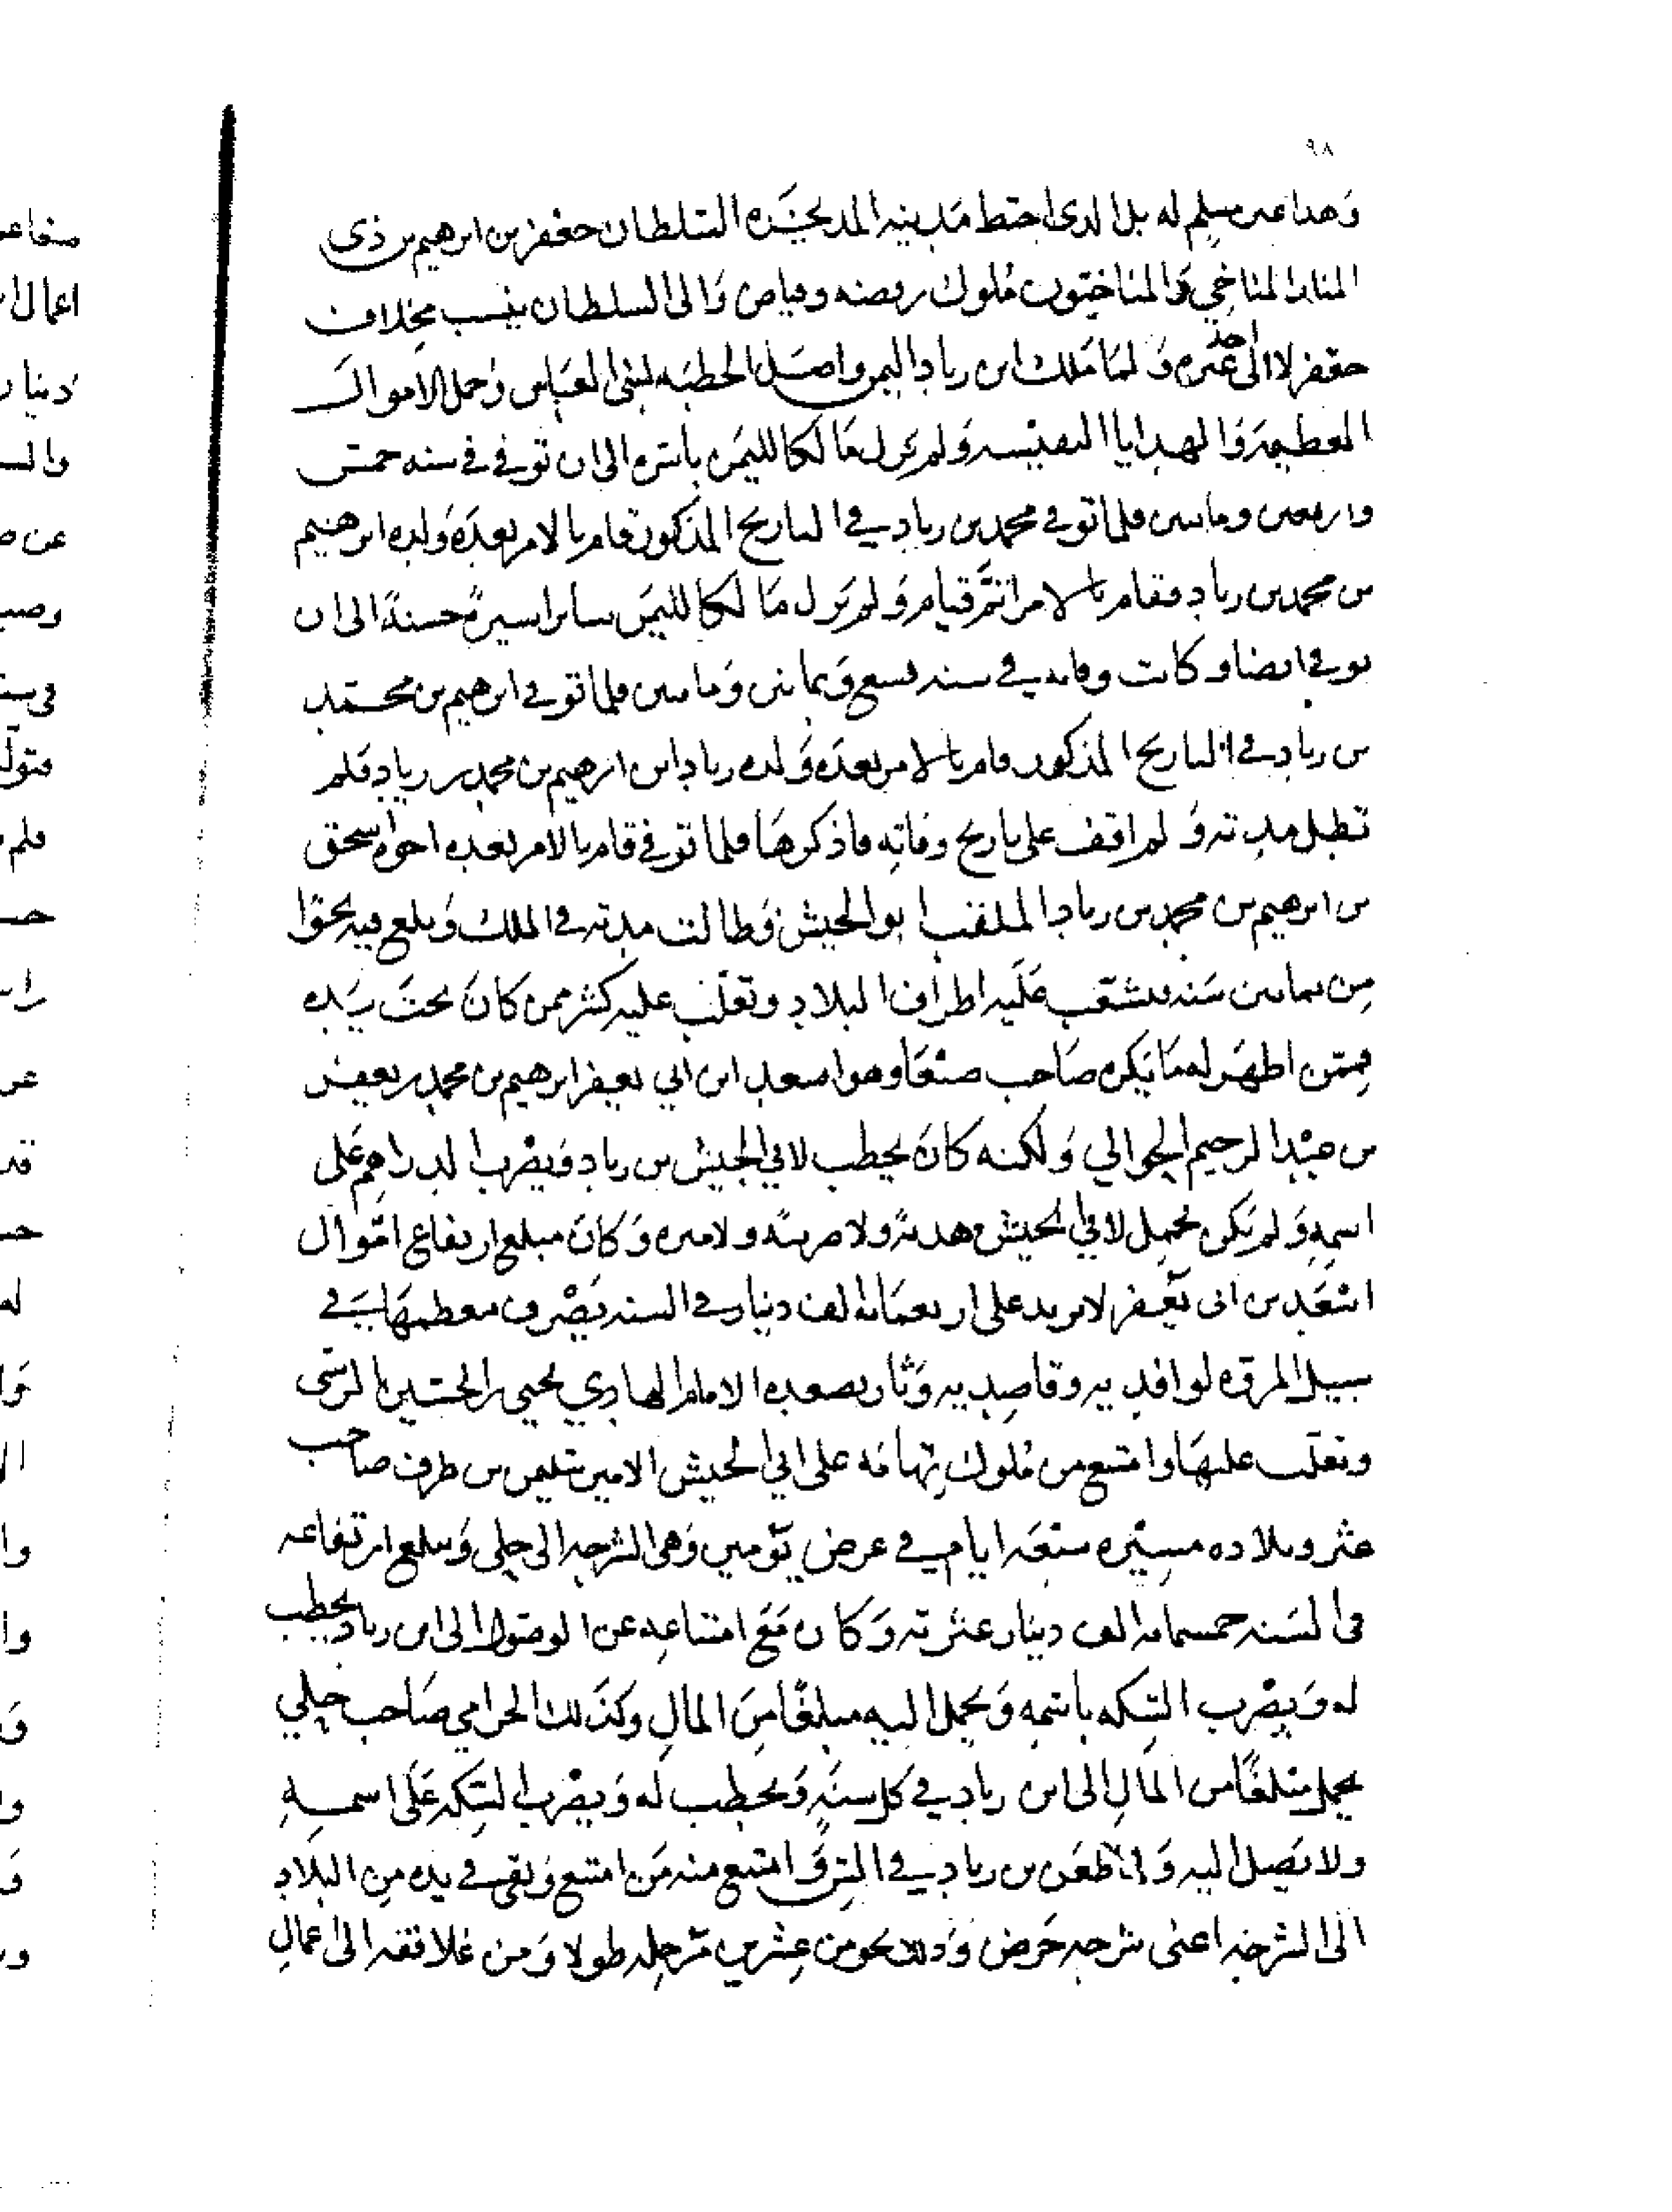 ٩٨
وهذا غير مسلم له بل الذى اختط مدينة المذيخرة السلطان جعفر بن ابرهيم بن ذى
المثلة المناخي والمناخيون ملوك ريمه وقياض والى السلطان ينسب مخلاف
جعفر لا الى احد غيره ولما ملك ابن زياد اليمن واصل الخطبه لبنى العباس وحمل الاموال
العظيمة والهدايا النفيسه ولم يزل مالكا لليمن باسره الى ان توفي في سنه خمس
واربعين ومايتين فلما توفي محمد بن زياد في التاريخ المذكور قام بالامر بعده ولده ابرهيم
بن محمد بن زياد فقام بالامر اتم قيام ولم يزل مالكا لليمن سائرا سيرة حسنة الى ان
توفي ايضا وكانت وفاته في سنه تسع وثمانين ومايتين فلما توفي ابرهيم بن محمد
بن زياد في التاريخ المذكور قام بالامر بعده ولده زياد ابن ابرهيم بن محمد بن زياد فلم
تطل مدته ولم اقف على تاريخ وفاته فاذكرها فلما توفي قام بالامر بعده اخوه اسحق
بن ابرهيم بن محمد بن زياد الملقب ابو الجيش وطالت مدته في الملك وبلغ فيه نحوا
من ثمانين سنه فتشعب عليه اطراف البلاد وتغلب عليه كثير ممن كان تحت يده
فممن اظهر له ما يكره صاحب صنعا وهو اسعد ابن ابي يعفر ابرهيم بن محمد بن يعفر
بن عبد الرحيم الحوالي ولكنه كان يخطب لابي الجيش بن زياد ويضرب الدراهم على
اسمه ولم يكن يحمل لابي الجيش هدية ولا ضريبة ولا ميره وكان مبلغ ارتفاع اموال
اسعد بن ابى يعفر لا يزيد على اربعمائة الف دينار في السنه يصرف معظمها في
سبيل المروه لوافديه وقاصديه وثار بصعده الامام الهادي يحيى بن الحسين الرسى
وتغلب عليها وامتنع من ملوك تهامه على ابي الجيش الامير سليمن بن طرف صاحب
عثر وبلاده مسيره سبعة ايام في عرض يومين وهى الشرجه الى حلى ومبلغ ارتفاعه
في السنه خمسمائه الف دينار عثريه وكان مع امتناعه عن الوصول الى ابن زياد يخطب
له ويضرب السكه باسمه ويحمل اليه مبلغا من المال وكذلك الحرامي صاحب حلي
يحمل مبلغا من المال الى ابن زياد في كل سنه ويخطب له ويضرب السكه على اسمه
ولا يصل اليه ولما طعن بن زياد في السن وامتنع منه من امتنع وبقي في يده من البلاد
الى الشرجه اعنى شرجه حرض وذلك نحو من عشرين مرحله طولا ومن غلافقه الى اعمال